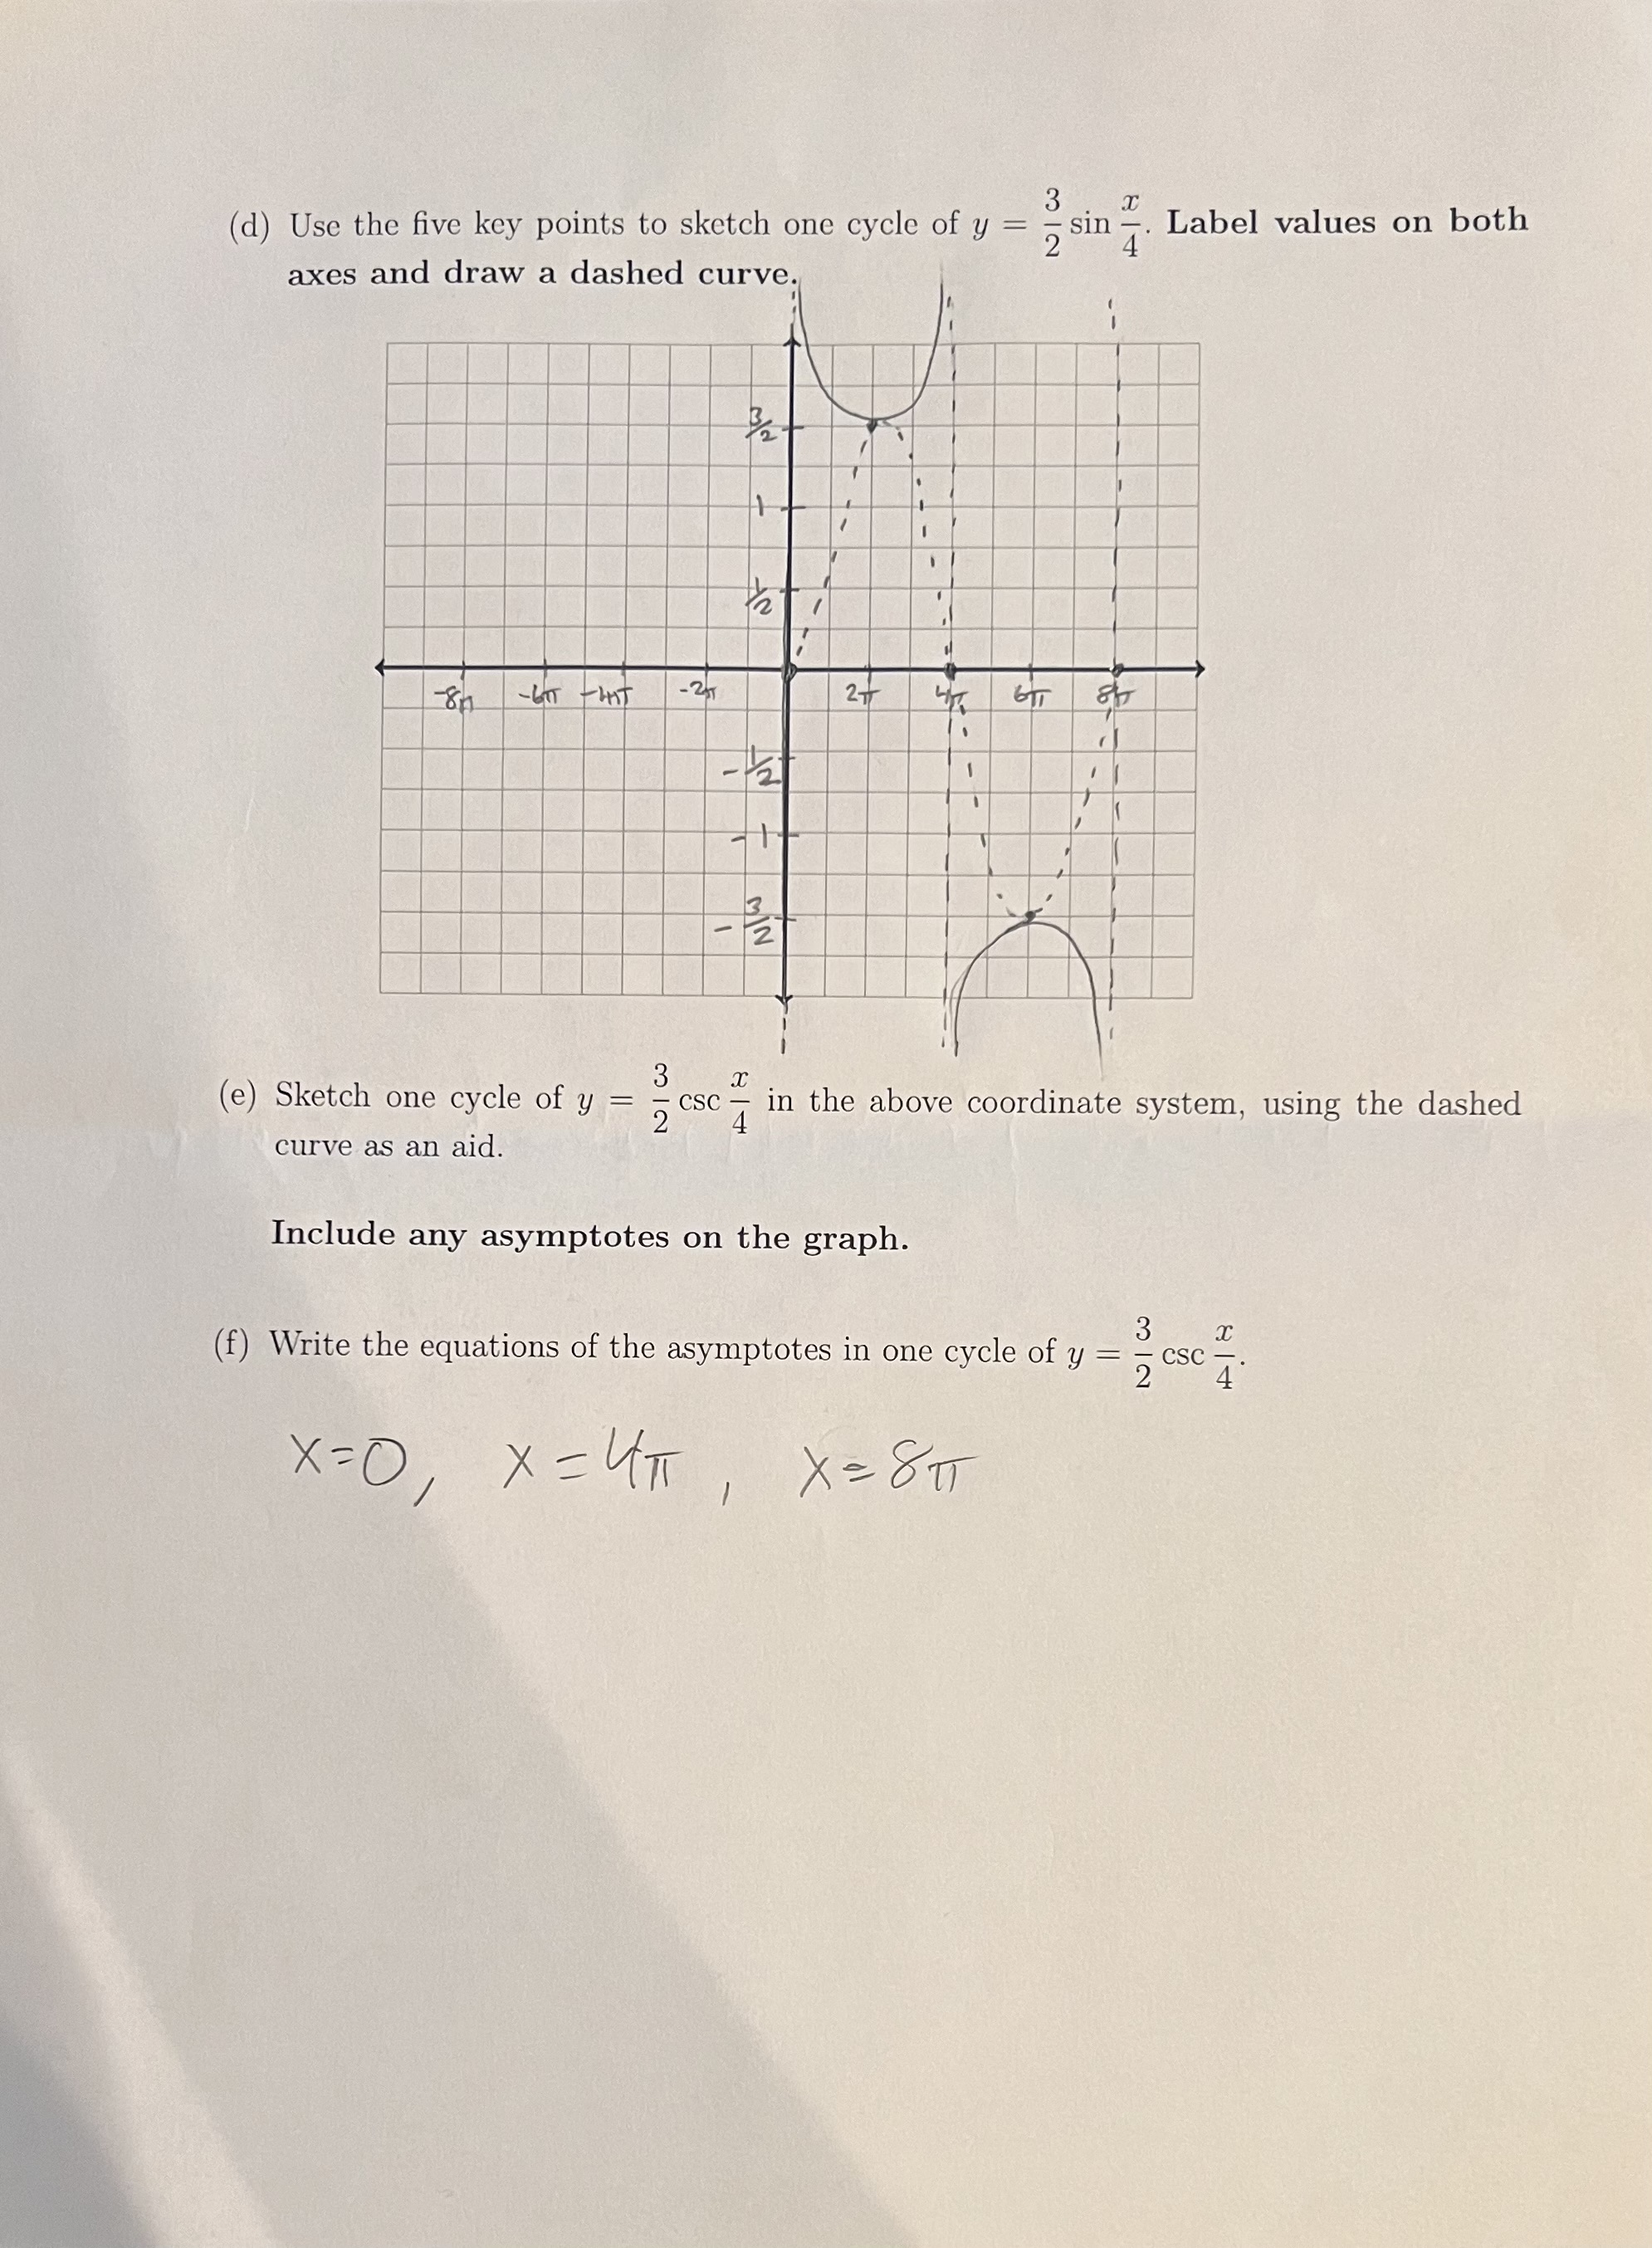 (d) Use the five key points to sketch one cycle of y = 3/2 sin x/4. Label values on both
axes and draw a dashed curve.
3/2
1
1/2
-8π -6π -4π -2π 2π 4π 6π 8π
-1/2
-1
-3/2
(e) Sketch one cycle of y = 3/2 csc x/4 in the above coordinate system, using the dashed
curve as an aid.
Include any asymptotes on the graph.
(f) Write the equations of the asymptotes in one cycle of y = 3/2 csc x/4.
x=0, x=4π, x=8π